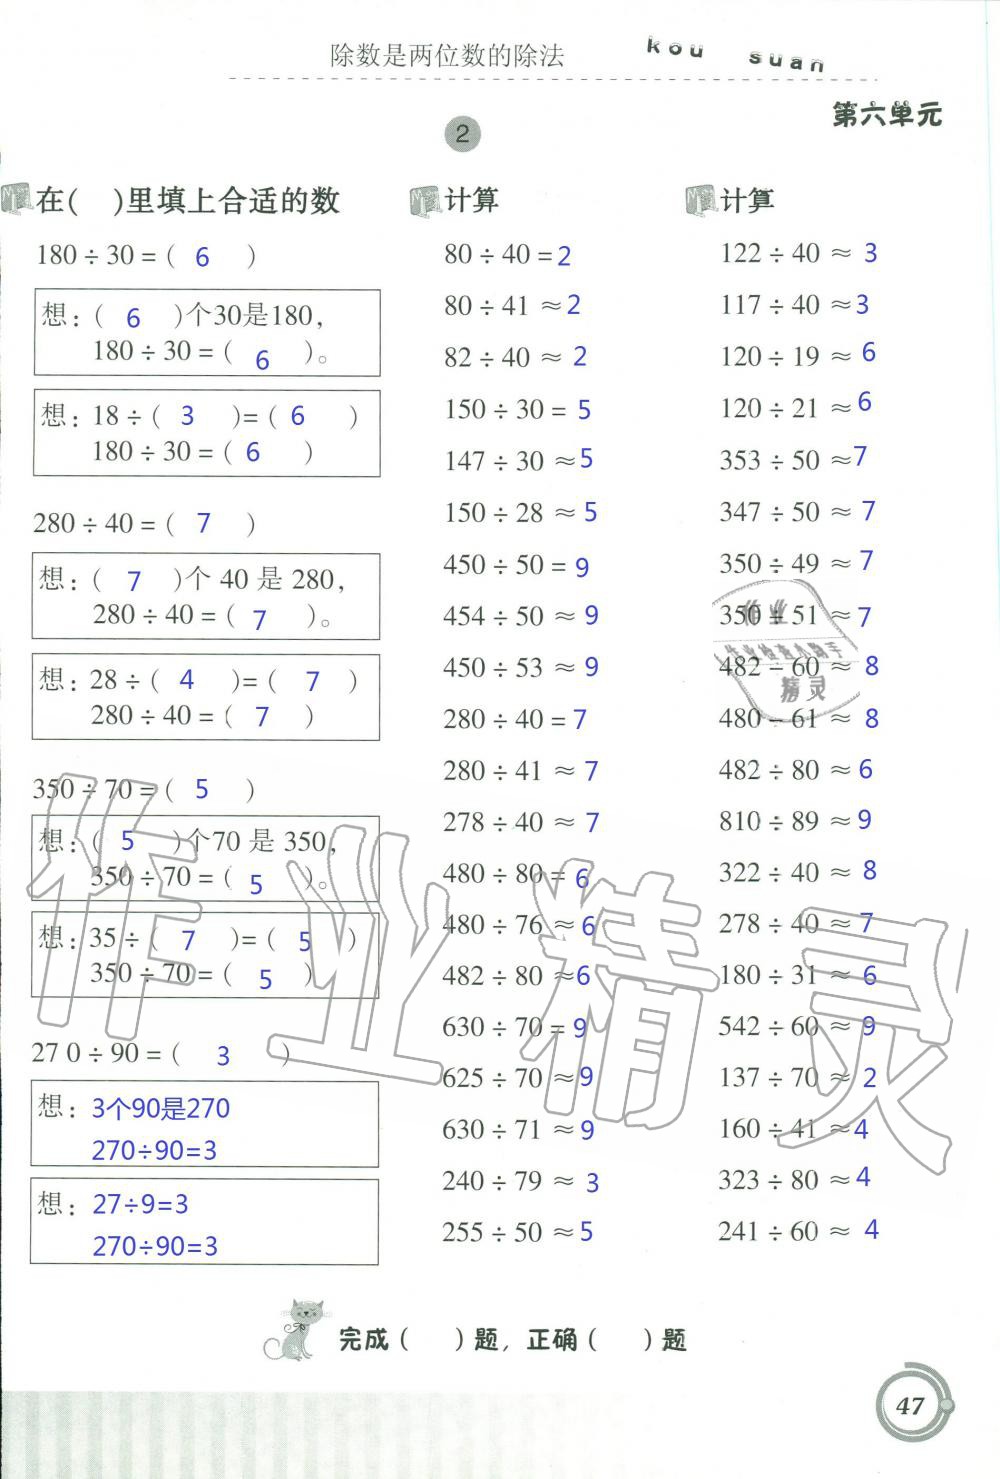 除数是两位数的除法 kou suan
第六单元
2
在( )里填上合适的数
180÷30=( 6 )
想:( 6 )个30是180,
180÷30=( 6 )。
想:18÷( 3 )=( 6 )
180÷30=( 6 )
280÷40=( 7 )
想:( 7 )个 40 是 280,
280÷40=( 7 )。
想:28÷( 4 )=( 7 )
280÷40=( 7 )
350÷70=( 5 )
想:( 5 )个70 是 350,
350÷70=( 5 )。
想:35÷( 7 )=( 5 )
350÷70=( 5 )
27 0÷90=( 3 )
想:3个90是270
270÷90=3
想:27÷9=3
270÷90=3
计算
80÷40=2
80÷41≈2
82÷40≈2
150÷30=5
147÷30≈5
150÷28≈5
450÷50=9
454÷50≈9
450÷53≈9
280÷40=7
280÷41≈7
278÷40≈7
480÷80=6
480÷76≈6
482÷80≈6
630÷70=9
625÷70≈9
630÷71≈9
240÷79≈3
255÷50≈5
计算
122÷40≈3
117÷40≈3
120÷19≈6
120÷21≈6
353÷50≈7
347÷50≈7
350÷49≈7
350÷51≈7
482÷60≈8
480÷61≈8
482÷80≈6
810÷89≈9
322÷40≈8
278÷40≈7
180÷31≈6
542÷60≈9
137÷70≈2
160÷41≈4
323÷80≈4
241÷60≈4
作业
作业检查小助手
精灵
作业精灵
完成( )题,正确( )题
47